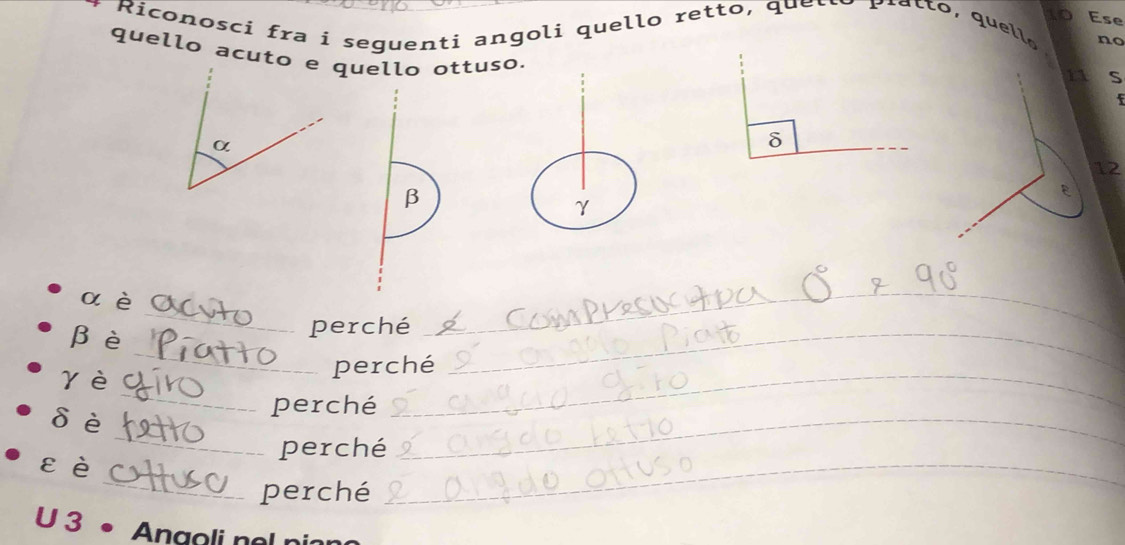 Riconosci fra i seguenti angoli quello retto, quello piatto, quello
quello acuto e quello ottuso.
10 Ese
no
11 S
f
12
α
β
γ
δ
ε
• α è acuto perché è compreso tra 0° e 90°
• β è Piatto perché è angolo Piatt
• γ è giro perché è angolo giro
• δ è retto perché è angolo retto
• ε è ottuso perché è angolo ottuso
U 3 • Angoli nel piano